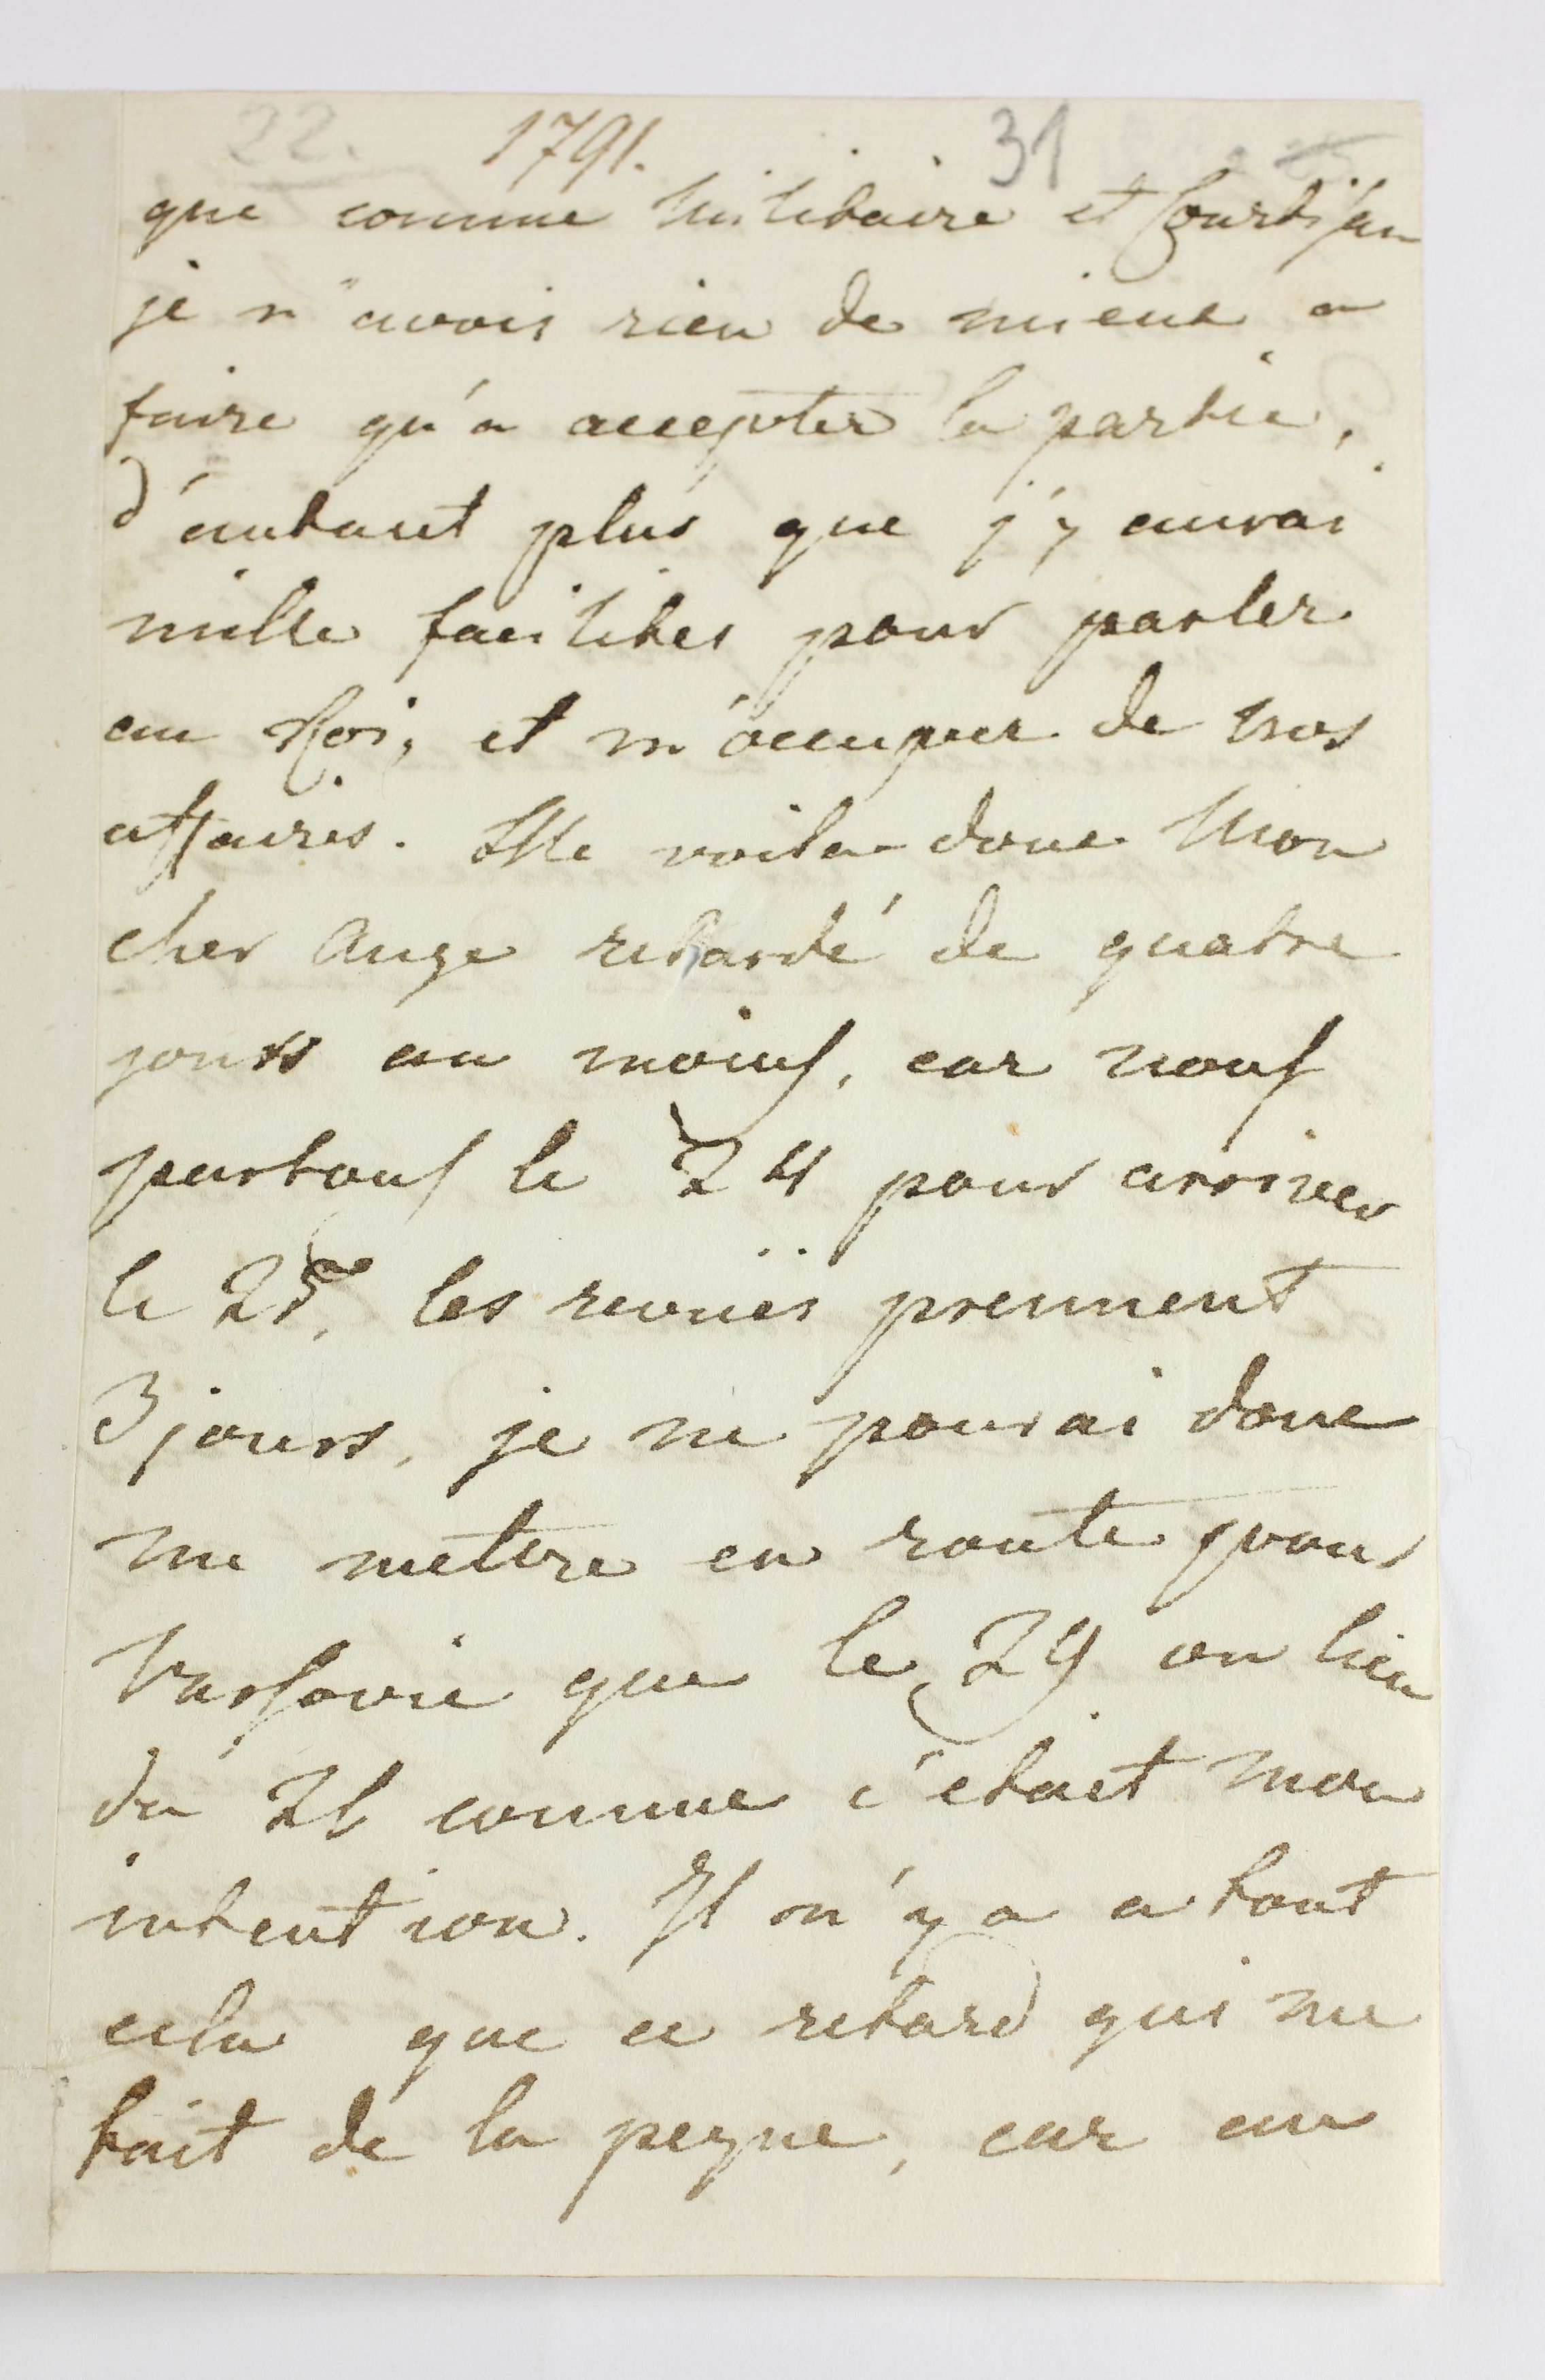 22. 1791. 31
que comme Militaire et Courtisan
je n'avois rien de mieux a
faire qu'a accepter la partie,
d'autant plus que j'y aurai
mille facilites pour parler
au Roi, et m'occuper de nos
affaires. Me voila donc Mon
cher Ange retardé de quatre
jours au moins, car nous
partons le 24 pour arriver
le 25, les revües prennent
3 jours, je ne pourai donc
me mettre en route pour
Varsovie que le 29 au lieu
du 21 comme c'etait mon
intention. Il n'y a a tout
cela que ce retard qui me
fait de la peyne, car au